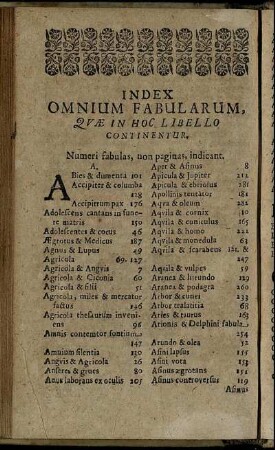 INDEX
OMNIUM FABULARUM,
QVÆ IN HOC LIBELLO
CONTINENTUR.
Numeri fabulas, non paginas, indicant.
A.
ABies & dumenta 101
Accipiter & columbæ
Accipitrum pax 176
Adolescens cantans in fune-
re matris 150
Adolescentes & coeus 46
Ægrotus & Medicus 187
Agnus & Lupus 49
Agricola 69. 127
Agricola & Anguis
Agricola & Ciconia 60
Agricola & filii 51
Agricola, miles & mercator
factus 126
Agricola thesaurum inveni-
ens 96
Amnis contemtor fontium
147
Amnium silentia 130
Angvis & Agricola 26
Anseres & grues 80
Anus laborans ex oculis 207
Aper & Asinus 8
Apicula & Jupiter 212
Apicula & ebriosus 281
Apollinis tentator 182
Aqva & oleum 281
Aqvila & cornix 10
Aqvila & cuniculus 165
Aqvila & homo 221
Aqvila & monedula 63
Aqvila & scarabeus &
Aqvila & vulpes 59
Aranea & hirundo 119
Aranea & podagra 260
Arbor & cunei 233
Arbor tralatitia 68
Aries & taurus 163
Arionis & Delphini fabula
254
Arundo & olea 52
Asini lapsus 155
Asini vota 153
Asinus ægrotans 151
Asinus controversus 119
Asinus